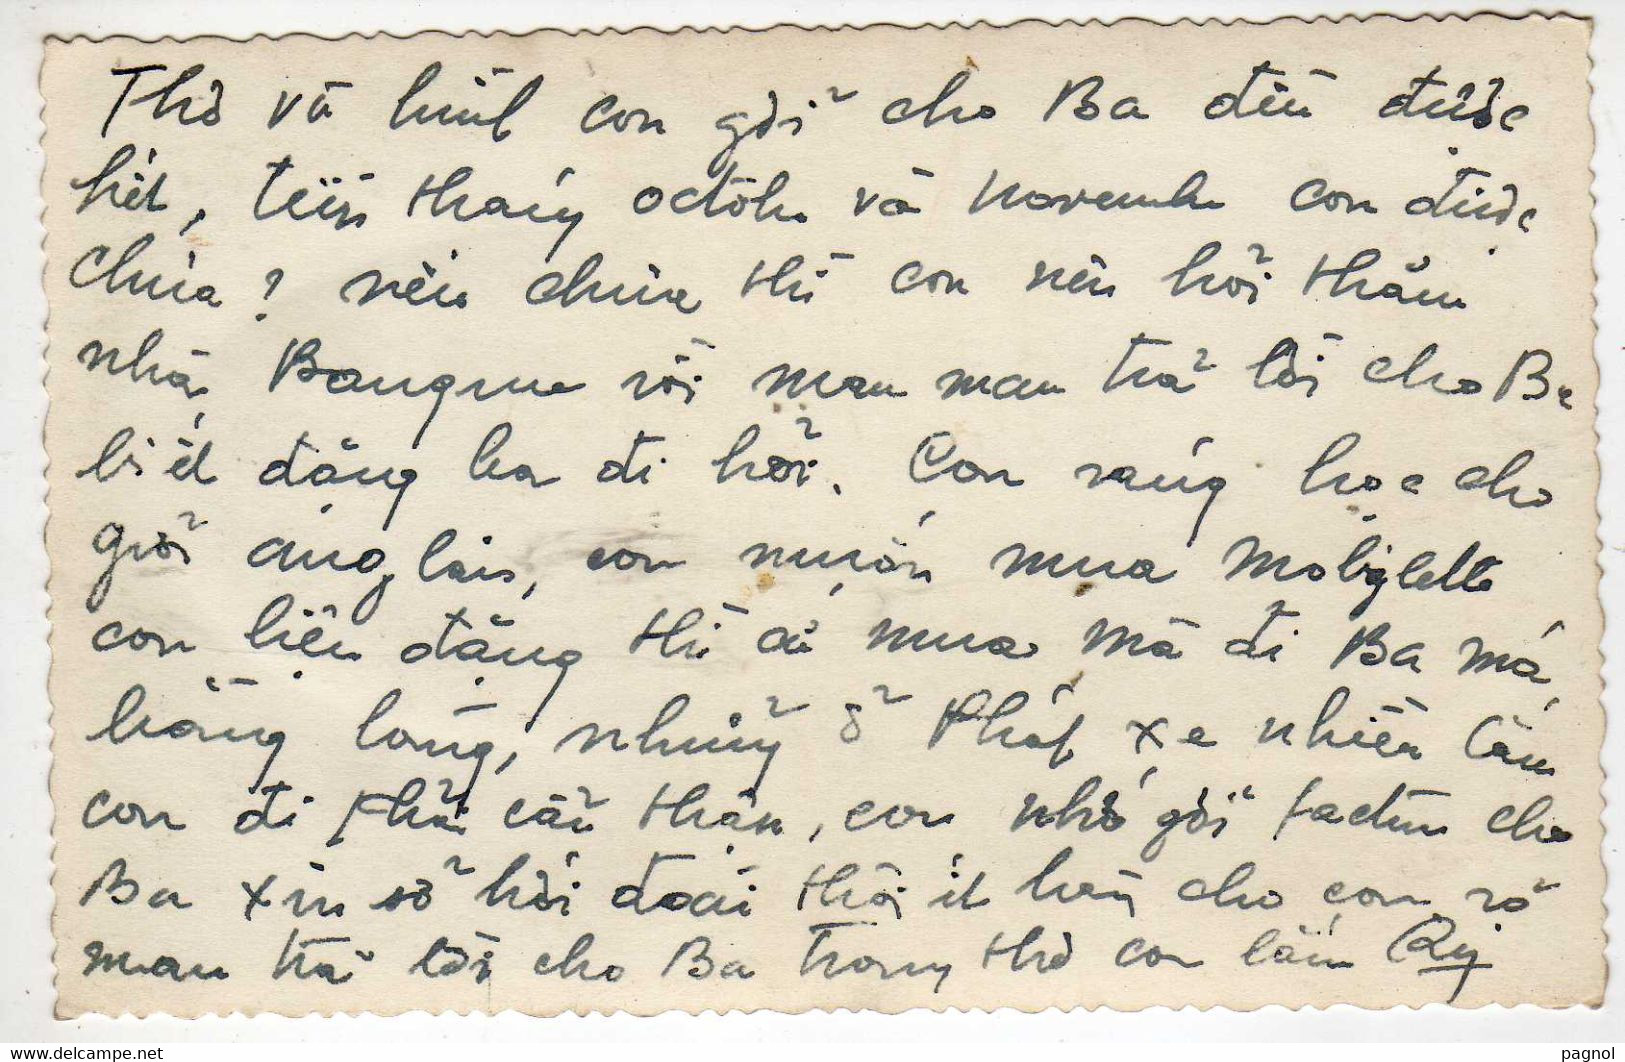 Thơ và hình con gởi cho Ba đều được
hết, tiền tháng octobre và novembre con được
chưa ? nếu chưa thì con nên hỏi thăm
nhà Banque rồi mau mau trả lời cho Ba
biết đặng ba đi hỏi. Con ráng học cho
giỏi anglais, con muốn mua mobylette
con liệu đặng thì cứ mua mà đi Ba má
bằng lòng, nhưng ở Pháp xe nhiều lắm
con đi phải cẩn thận, con nhớ gởi facture cho
Ba xin sở hối đoái thôi ít hàng cho con rõ
mau trả lời cho Ba trong thơ con lắm
www.delcampe.net
pagnol